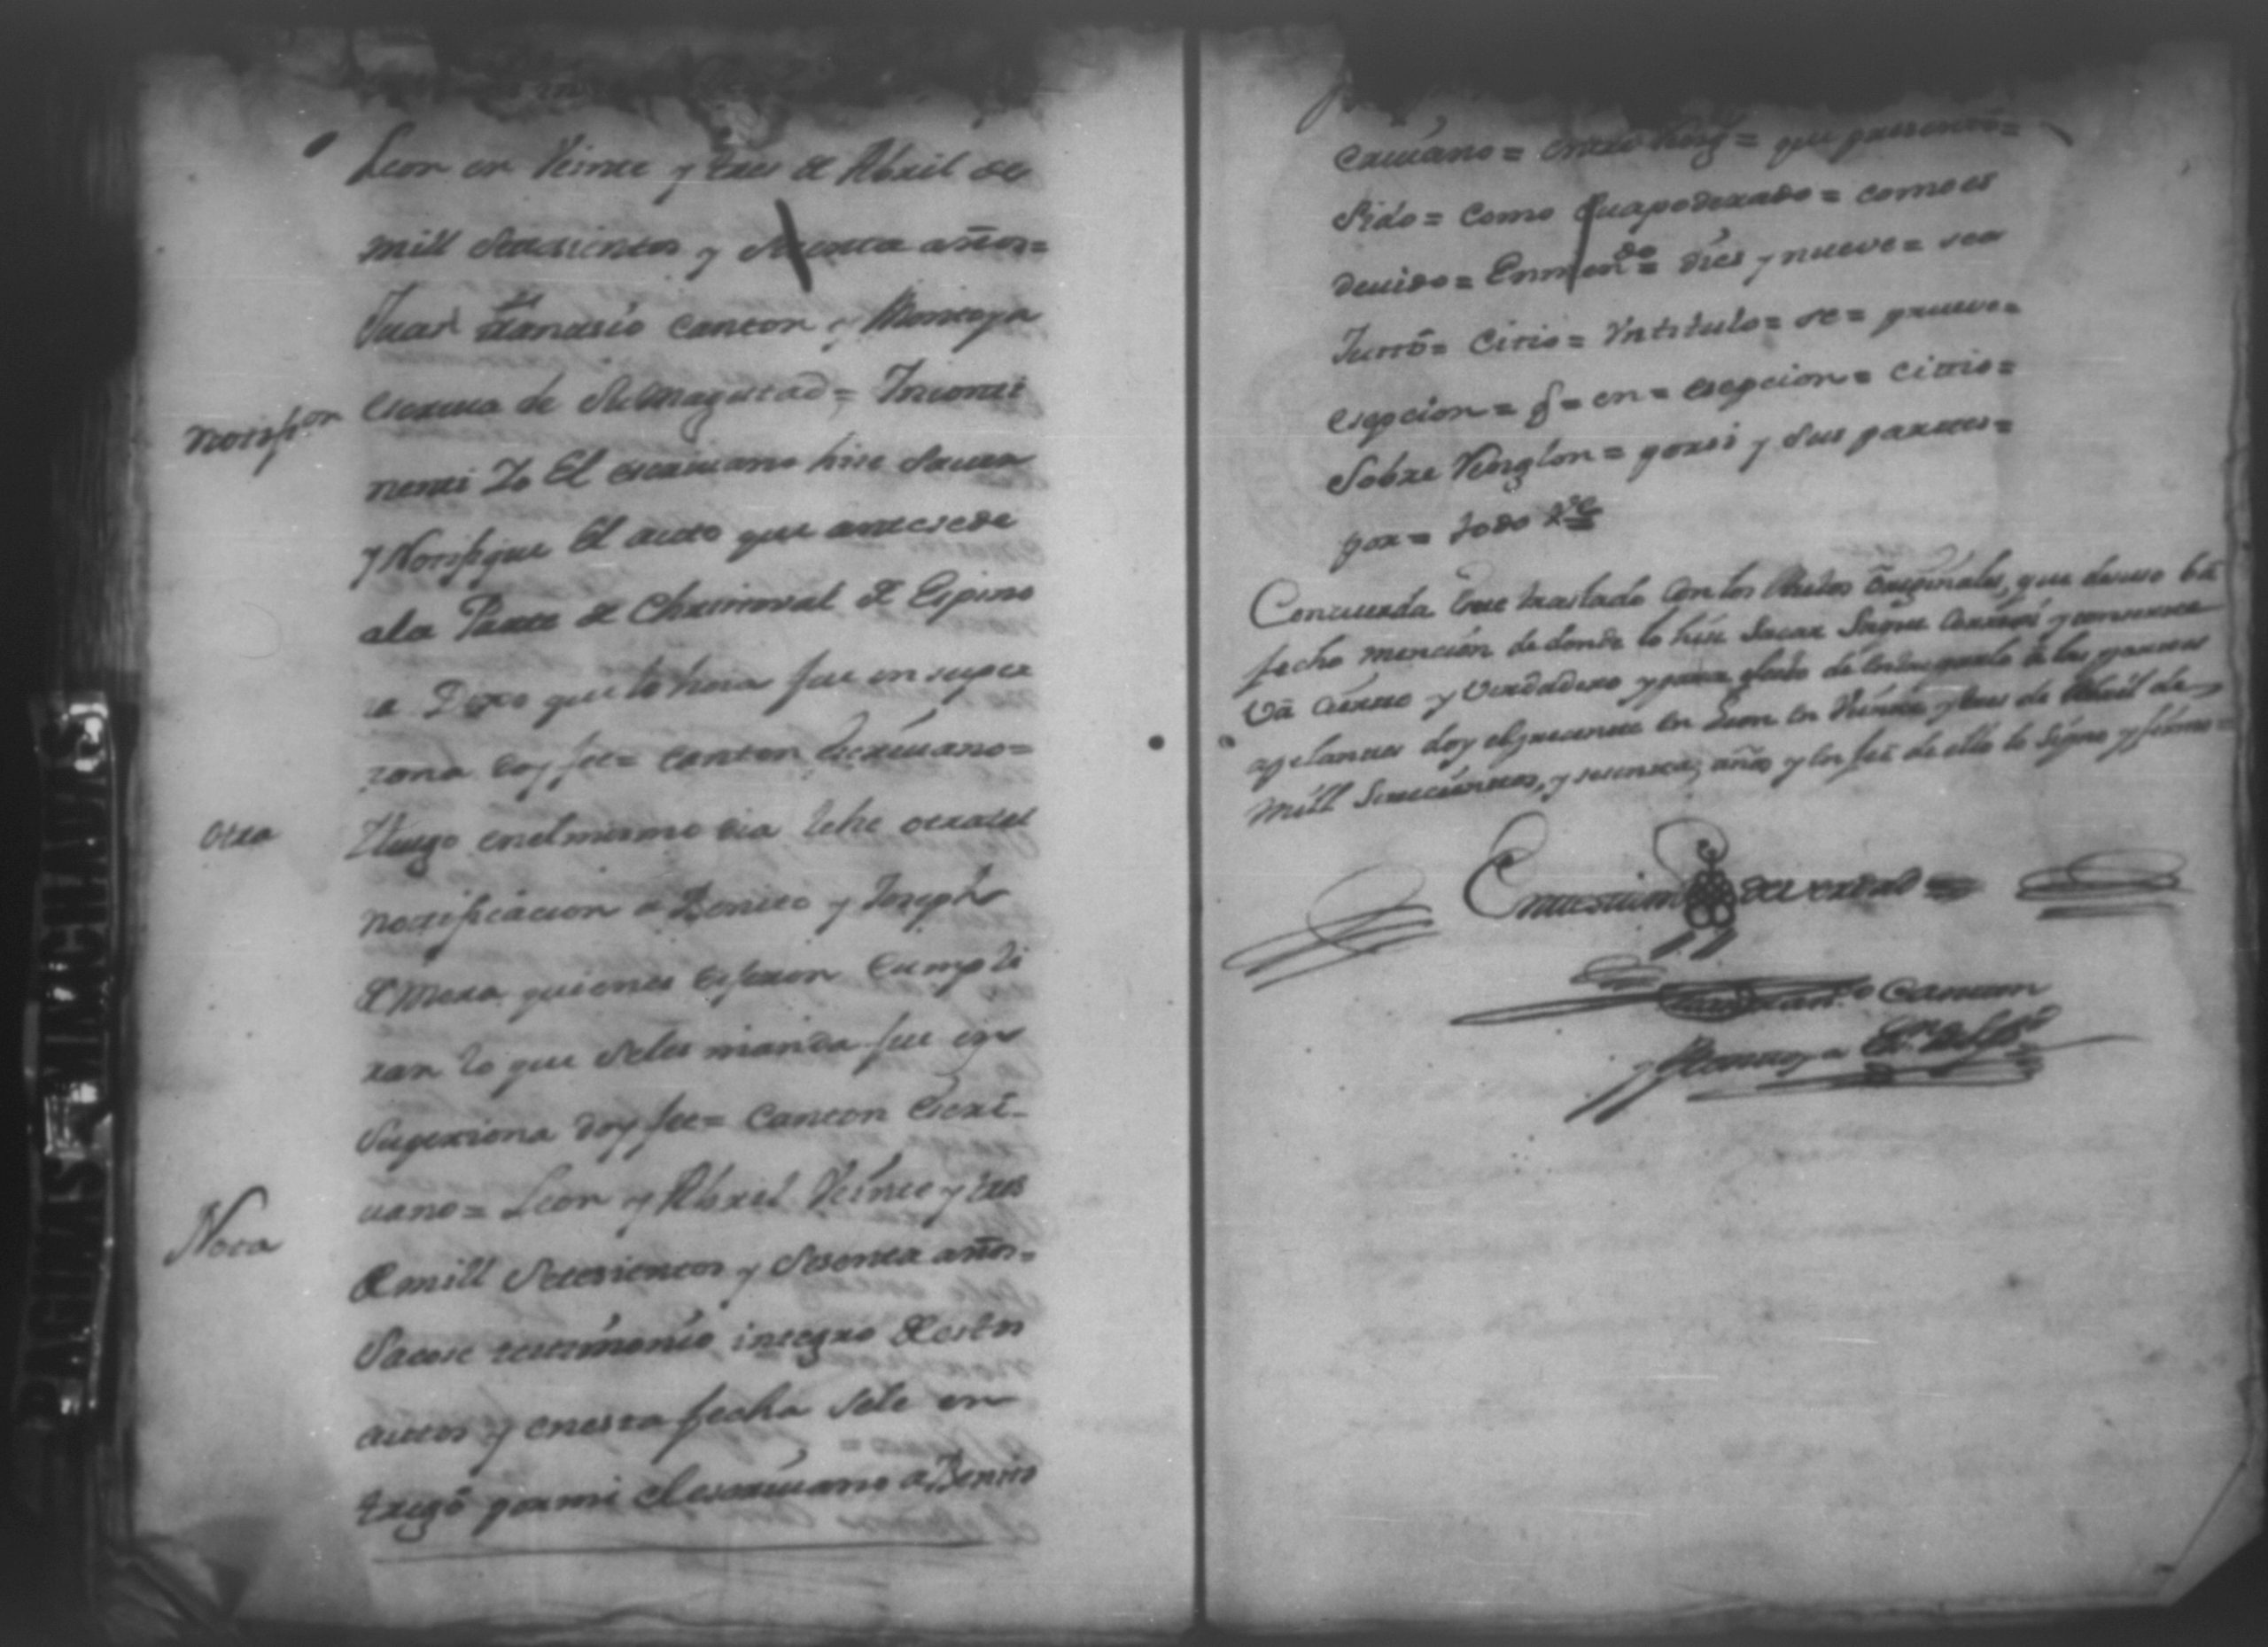 Leon en Veinte y tres de Abril de
mill Setesientos y Sesenta años=
Juan Athanasio Canton y Montoya
Notifon
escriua de Su Magestad= Inconti
nenti Yo El escriuano hise Sauer
y Notifique El auto que antesede
ala Parte de Christoval de Espino
sa Dixo que lo hoia fue en su per
sona doy fee= Canton Escriuano=
Otra
Y luego en el mismo dia le hise otra tal
notificacion a Benito y Joseph
de Mera quienes dijeron Cumpli
ran lo que Seles manda fue en
Su persona doy fee= Canton Escri-
uano= Leon y Abril Veinte y tres
Nota
de mill Setesientos y Sesenta años=
Sacose testimonio integro de estos
autos y en esta fecha Sele en
tregó por mi el escriuano a Benito
criuano= entre Reng= que presentó=
Sido= Como Su apoderado= como es
deuido= Enmendo= dies y nueve= sea
Juró= Citio= Yntitulo= se= prueve=
esepcion= q= en= esepcion= citio=
Sobre Renglon= por si y Sus partes=
por= todo Ve
Concuerda este traslado Con los Autos Originales, que de uso bá
fecho mención de donde lo hise Sacar Sigue Corregi y concuerda
Vá Cierto y Verdadero y para efecto de entregarlo á las partes
apelantes doy el presente en Leon en Veinte y tres de Abril de
Mill Setecientos, y sesenta años y en fee de ello lo Signo y firmo=
En testimonio de verdad=
Juan Athano Canton
y Montoya Esno de Sd